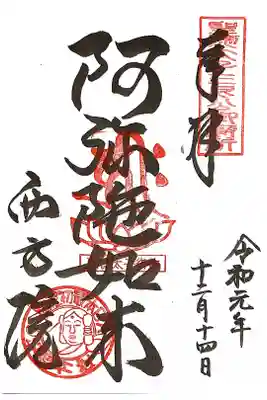 奉拝
令和元年
十二月十四日
阿弥陀如来
西方院